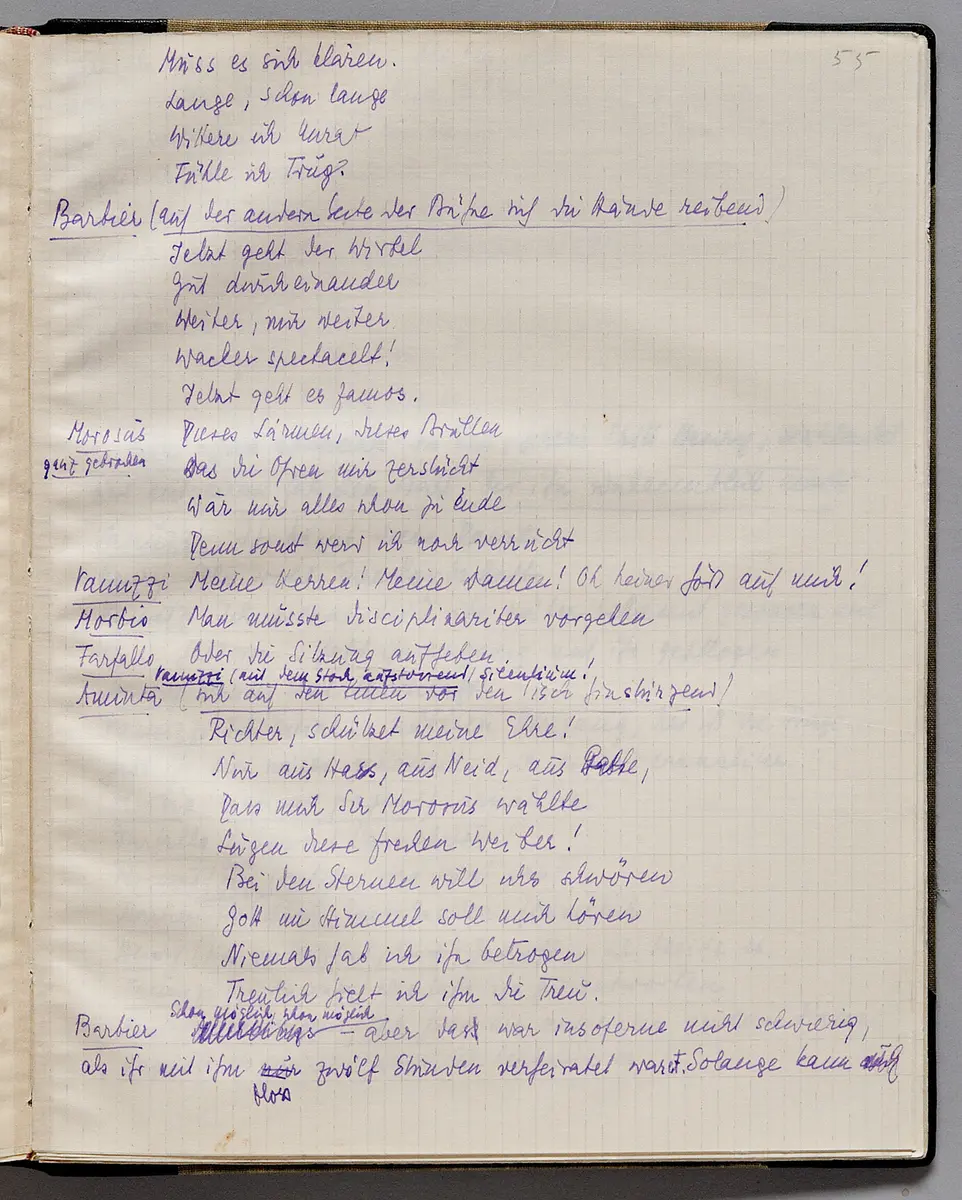 55
Muss es sich klären.
Lange, schon lange
Wittere ich Unrat
Fühle ich Trug?
Barbier (auf der andern Seite der Bühne sich die Hände reibend)
Jetzt geht der Wirbel
Gut durcheinander
Weiter, nur weiter
Wacker spectacelt!
Jetzt geht es famos.
Morosus Dieses Lärmen, dieses Brüllen
ganz gebrochen Das die Ohren mir zerstückt
Wär nur alles schon zu Ende
Denn sonst werd ich noch verrückt
Vanuzzi Meine Herren! Meine Damen! Oh keiner hört auf mich!
Morbio Man müsste disciplinariter vorgehen
Farfallo Oder die Sitzung aufheben.
Vanuzzi (mit dem Stock aufstossend) Silentium!
Aminta (sich auf den Knien vor den Tisch hinstürzend)
Richter, schützet meine Ehre!
Nur aus Hass, aus Neid, aus
Dass mich Sir Morosus wählte
Lügen diese frechen Weiber!
Bei den Sternen will ichs schwören
Gott im Himmel soll mich hören
Niemals hab ich ihn betrogen
Treulich hielt ich ihm die Treu.
Schon möglich, schon möglich
Barbier Allerdings – aber das war insoferne nicht schwierig,
als ihr mit ihm nur zwölf Stunden verheiratet wart. Solange kann
bloss